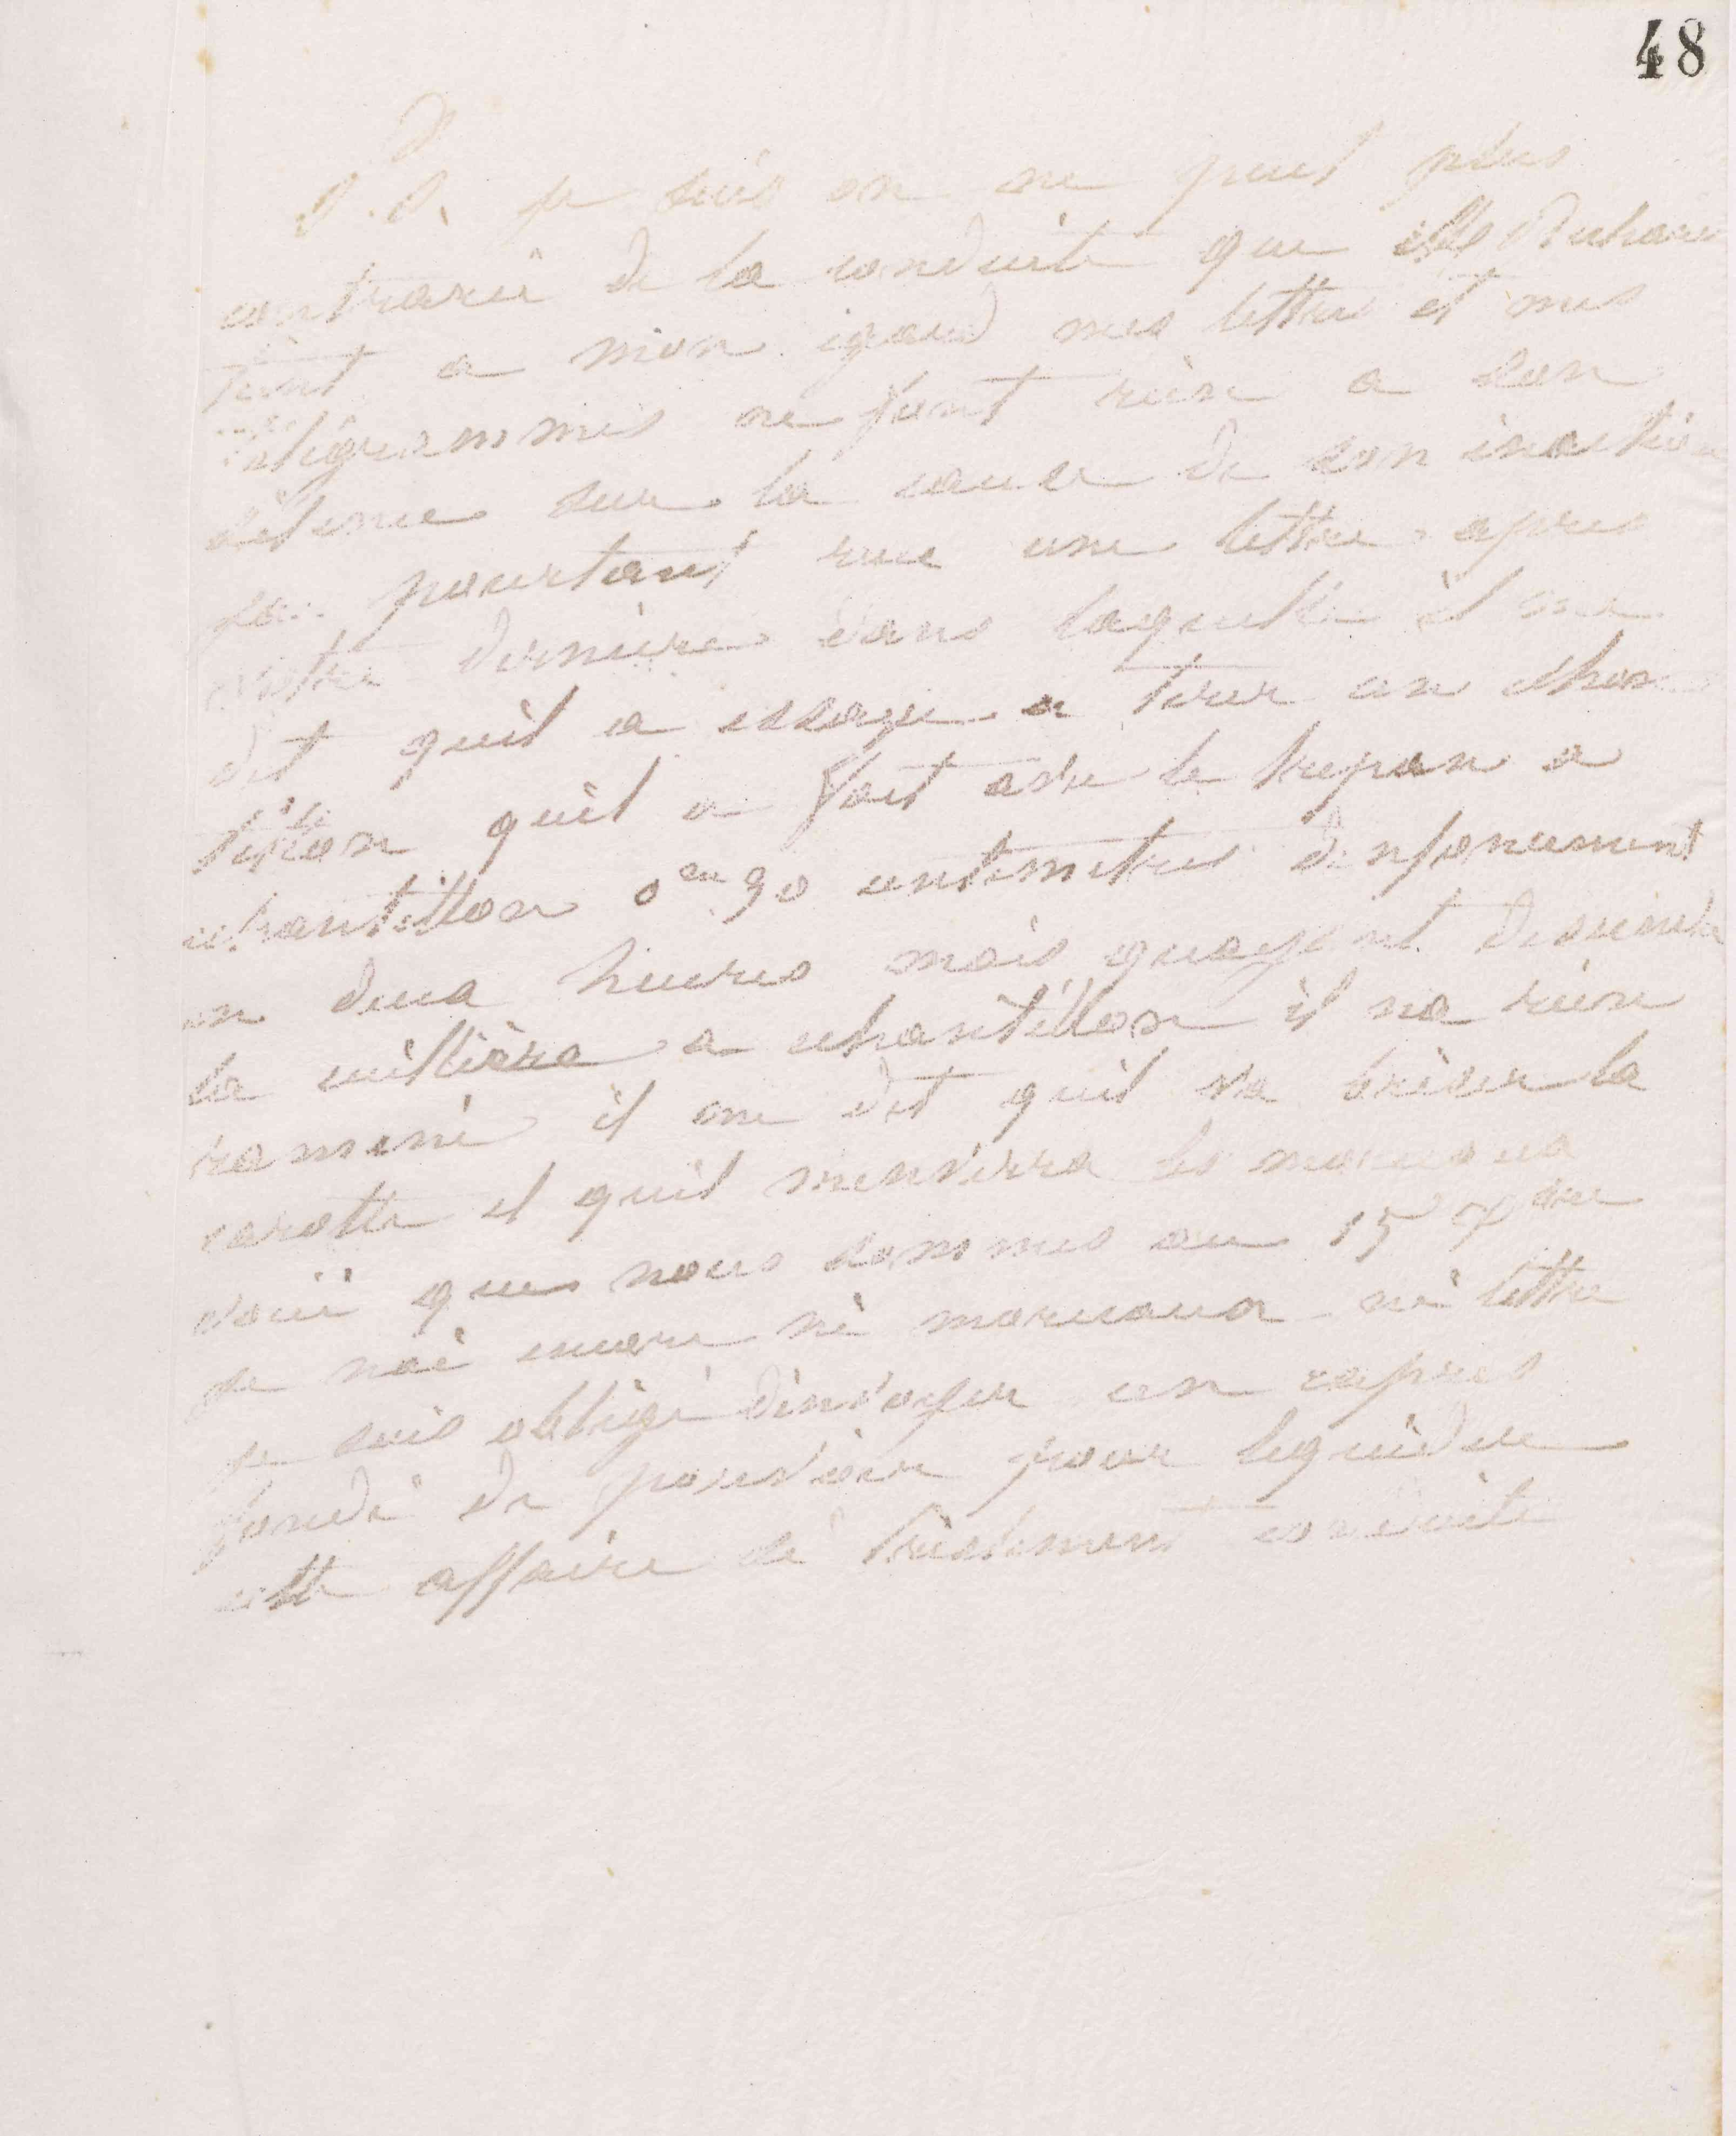 48
P.S. je suis on ne peut plus
contrarié de la conduite que
tient a mon egard mes lettres et mes
telegrammes ne font rien a son
silence sur la cause de son inaction
jai pourtant recu une lettre apres
votre derniere dans laquelle il me
dit quil a essayé a tirer un echan
tillon quil a fait avec le trepan a
echantillon 0m 90 centimetres denfoncement
en deux heures mais quayant descendu
la cuillière a echantillon il na rien
ramené il me dit quil va briser la
carotte et quil menverra les morceaux
voici que nous sommes au 15 7bre
je nai encore ni morceaux ni lettre
je suis obligé denvoyer un expres
fondé de pouvoir pour liquider
cette affaire si tristement conduite